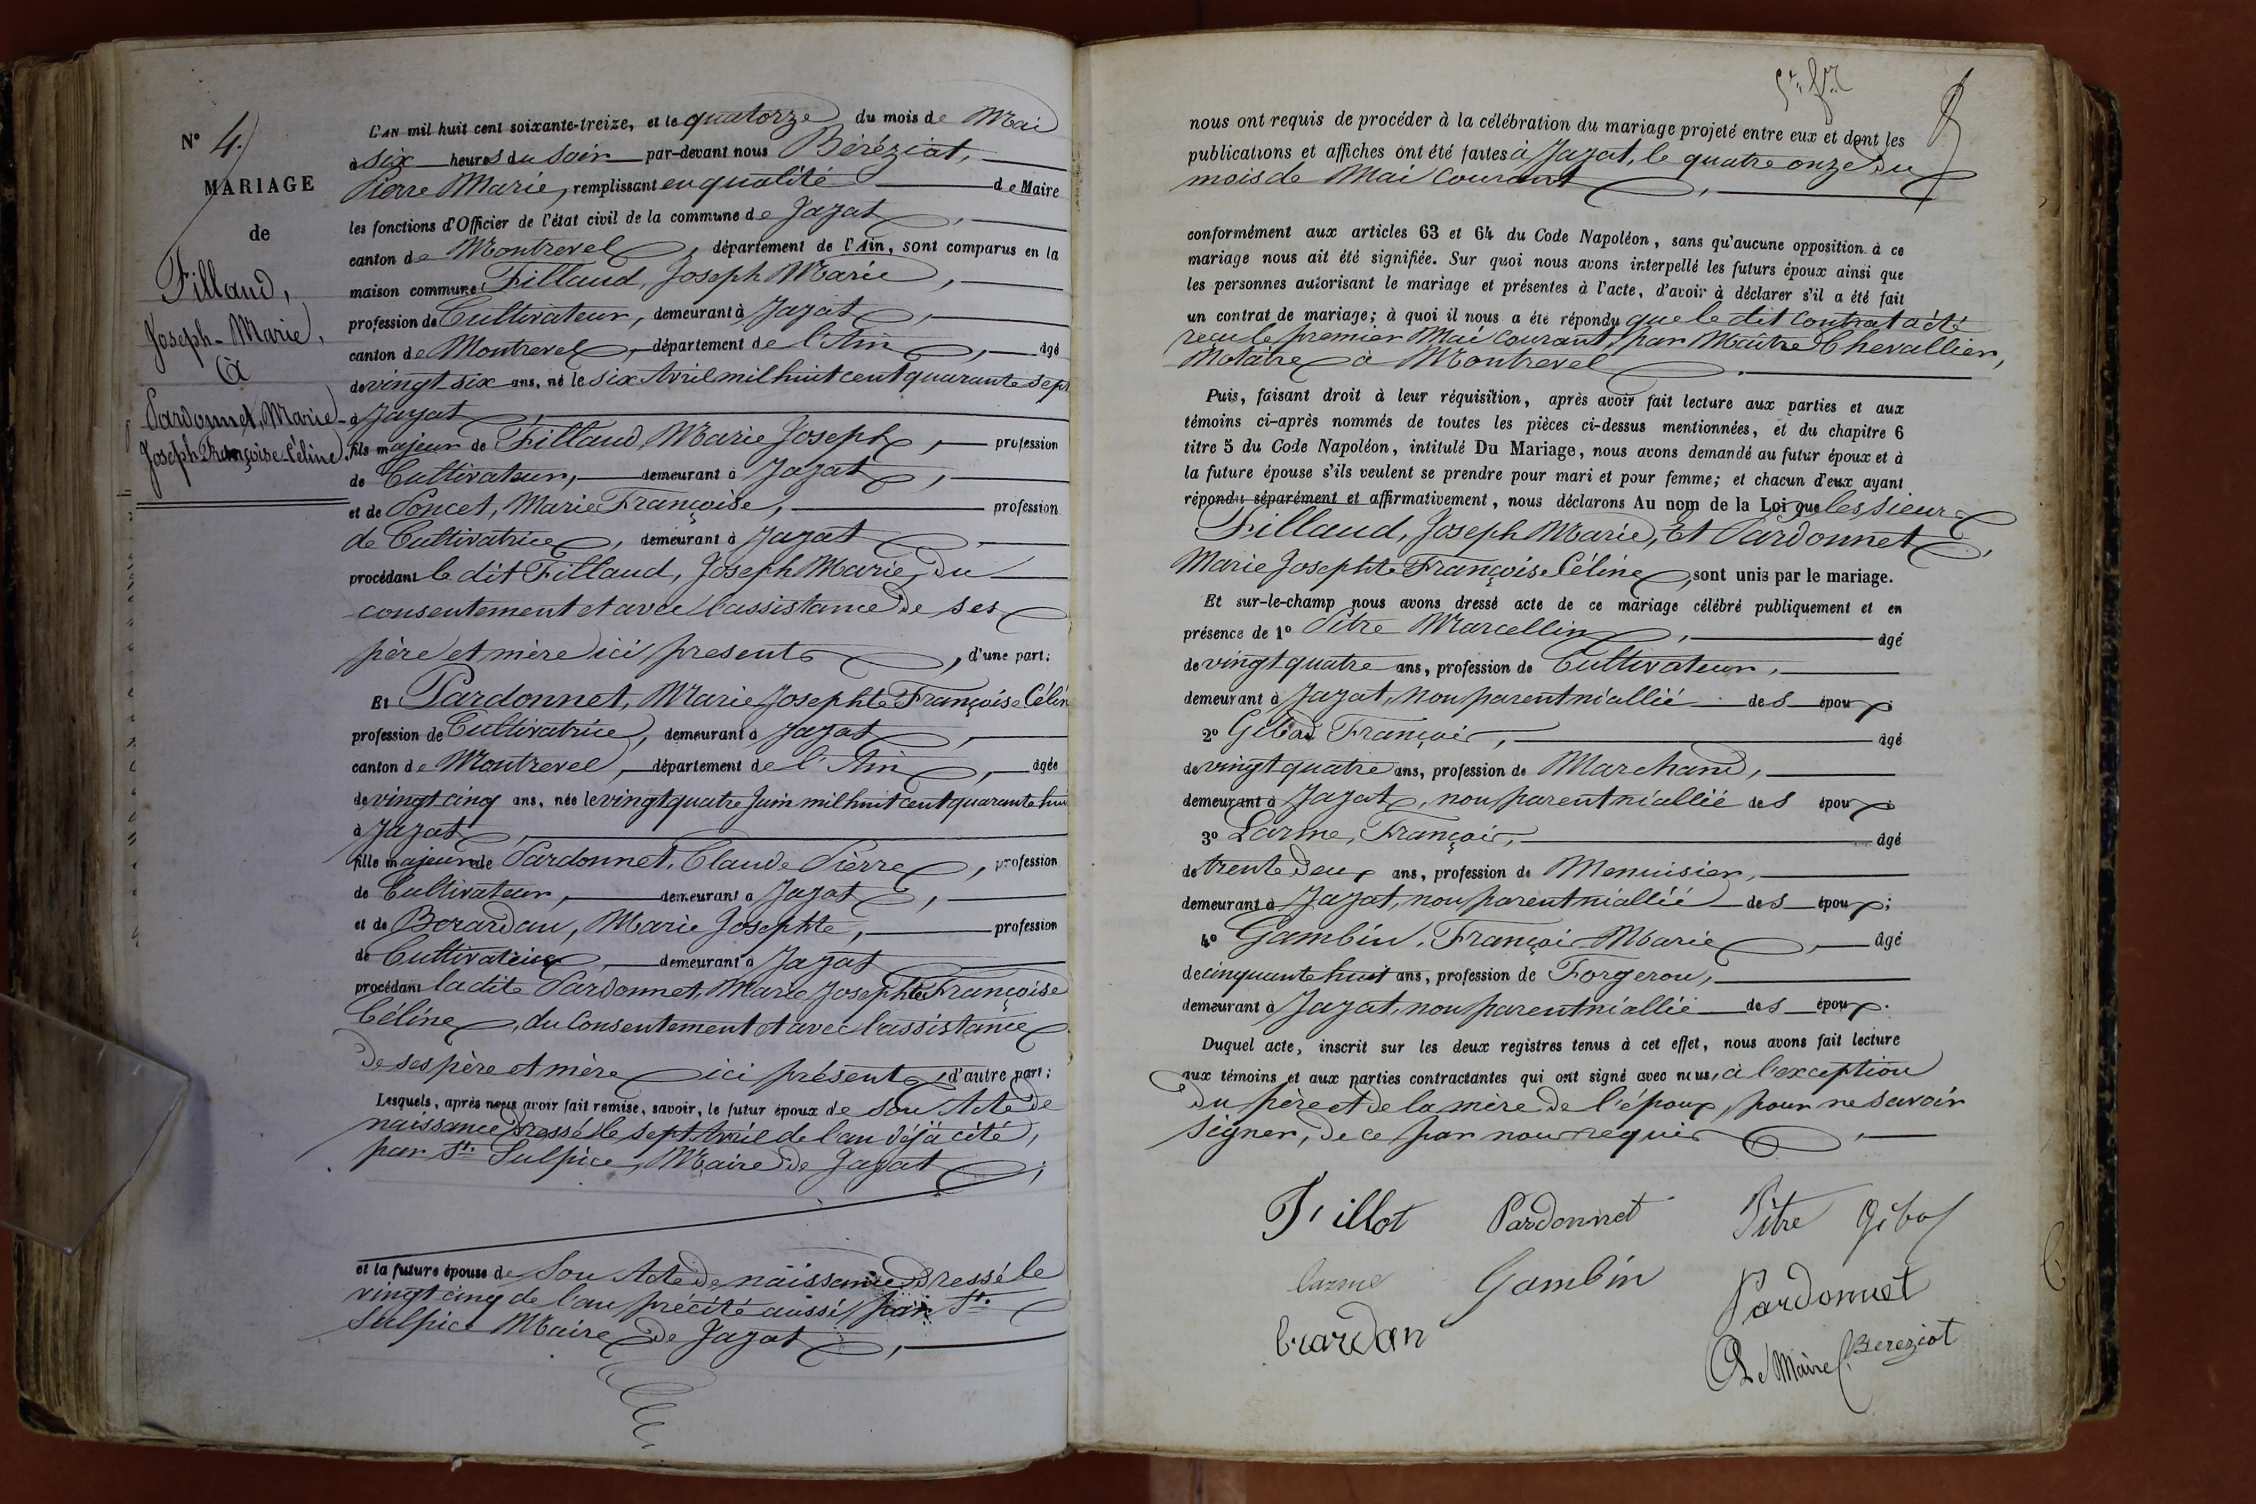 N° 4.
MARIAGE
de
Fillaud,
Joseph-Marie,
à
Pardonnet, Marie-
Josephte Françoise-Céline.
L'AN mil huit cent soixante-treize, et le quatorze du mois de Mai
à six heures du soir par-devant nous Béréziat,
Pierre Marie, remplissant en qualité de Maire
les fonctions d'Officier de l'état civil de la commune de Jayat,
canton de Montrevel, département de l'Ain, sont comparus en la
maison commune Fillaud, Joseph Marie,
profession de Cultivateur, demeurant à Jayat,
canton de Montrevel, département de l'Ain, âgé
de vingt six ans, né le six Avril mil huit cent quarante sept
à Jayat,
fils majeur de Fillaud, Marie Joseph, profession
de Cultivateur, demeurant à Jayat,
et de Poncet, Marie Françoise, profession
de Cultivatrice, demeurant à Jayat,
procédant le dit Fillaud, Joseph Marie, du
consentement et avec l'assistance de ses
père et mère ici présents, d'une part;
Et Pardonnet, Marie Josephte Françoise Célin
profession de Cultivatrice, demeurant à Jayat,
canton de Montrevel, département de l'Ain, âgée
de vingt cinq ans, née le vingt quatre Juin mil huit cent quarante hui
à Jayat,
fille majeure de Pardonnet, Claude Pierre, profession
de Cultivateur, demeurant à Jayat,
et de Berardan, Marie Josephte, profession
de Cultivatrice, demeurant à Jayat
procédant la dite Pardonnet, Marie Josephte Françoise
Céline, du consentement et avec l'assistance
de ses père et mère ici présents, d'autre part;
Lesquels, après nous avoir fait remise, savoir, le futur époux de son Acte de
naissance dressé le sept Avril de l'an déjà cité,
par St. Sulpice, Maire de Jayat;
et la future épouse de son Acte de naissance dressé le
vingt cinq de l'an précité aussi par St.
Sulpice Maire de Jayat,
nous ont requis de procéder à la célébration du mariage projeté entre eux et dont les
publications et affiches ont été faites à Jayat, le quatre onze du
mois de Mai courant,
conformément aux articles 63 et 64 du Code Napoléon, sans qu'aucune opposition à ce
mariage nous ait été signifiée. Sur quoi nous avons interpellé les futurs époux ainsi que
les personnes autorisant le mariage et présentes à l'acte, d'avoir à déclarer s'il a été fait
un contrat de mariage; à quoi il nous a été répondu que le dit contrat a été
reçu le premier Mai courant, par Maître Chevallier,
Notaire à Montrevel.
Puis, faisant droit à leur réquisition, après avoir fait lecture aux parties et aux
témoins ci-après nommés de toutes les pièces ci-dessus mentionnées, et du chapitre 6
titre 5 du Code Napoléon, intitulé Du Mariage, nous avons demandé au futur époux et à
la future épouse s'ils veulent se prendre pour mari et pour femme; et chacun d'eux ayant
répondu séparément et affirmativement, nous déclarons Au nom de la Loi que les sieur
Fillaud, Joseph Marie, Et Pardonnet,
Marie Josephte Françoise Céline, sont unis par le mariage.
Et sur-le-champ nous avons dressé acte de ce mariage célébré publiquement et en
présence de 1° Pitre Marcellin, âgé
de vingt quatre ans, profession de Cultivateur,
demeurant à Jayat, non parent ni allié des époux;
2° Gibod François, âgé
de vingt quatre ans, profession de Marchand,
demeurant à Jayat, non parent ni allié des époux;
3° Larme, François, âgé
de trente deux ans, profession de Menuisier,
demeurant à Jayat, non parent ni allié des époux;
4° Gambin, François Marie, âgé
de cinquante huit ans, profession de Forgeron,
demeurant à Jayat, non parent ni allié des époux.
Duquel acte, inscrit sur les deux registres tenus à cet effet, nous avons fait lecture
aux témoins et aux parties contractantes qui ont signé avec nous, à l'exception
du père et de la mère de l'époux, pour ne savoir
signer, de ce par nous requis,
Fillot Pardonnet Pitre Gibod
larme Gambin Pardonnet
brardan
Le Maire Bereziat